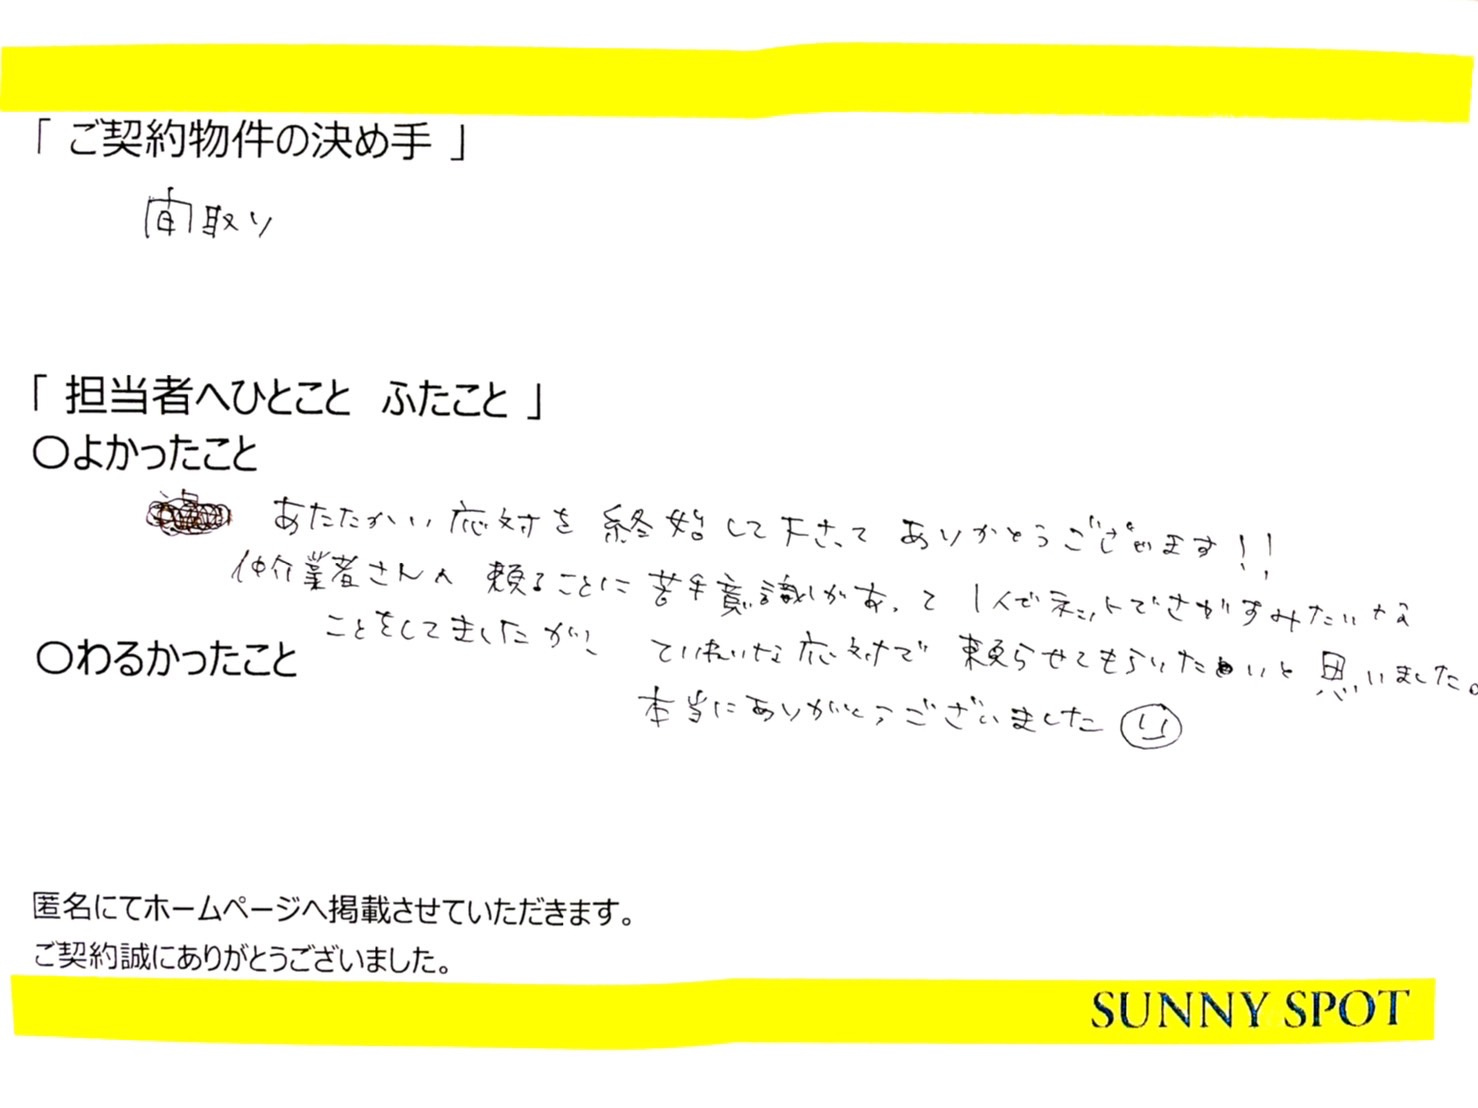 「 ご契約物件の決め手 」
間取り
「 担当者へひとこと　ふたこと 」
○よかったこと
あたたかい応対を終始して下さってありがとうございます!!
仲介業者さんへ頼ることに苦手意識があって1人でネットでさがすみたいな
ことをしてましたが、ていねいな応対で頼らせてもらいたいと思いました。
○わるかったこと
本当にありがとうございました
匿名にてホームページへ掲載させていただきます。
ご契約誠にありがとうございました。
SUNNY SPOT